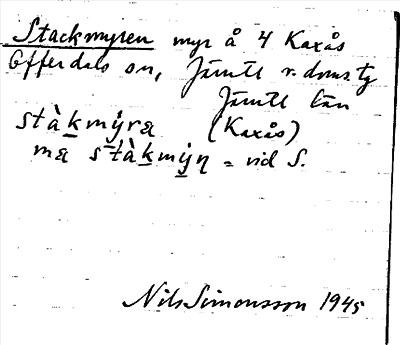 Stackmyren myr å 4 Kaxås
Offerdals sn, Jämtl n. doms tg
Jämtl län
stàkmỳra (Kaxås)
ma stàkmỳn = vid S.
Nils Simonsson 1945